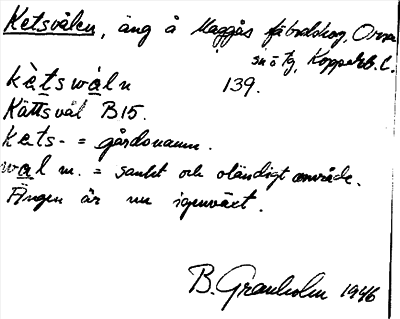 Ketsvålen, äng å Maggås fäbodskog, Orsa
snötg, Kopparb. l.
kètswàln 139.
Kättsvål B15.
kets- = gårdsnamn.
wal m. = sankt och oländigt område.
Ängen är nu igenväxt.
B. Granholm 1946